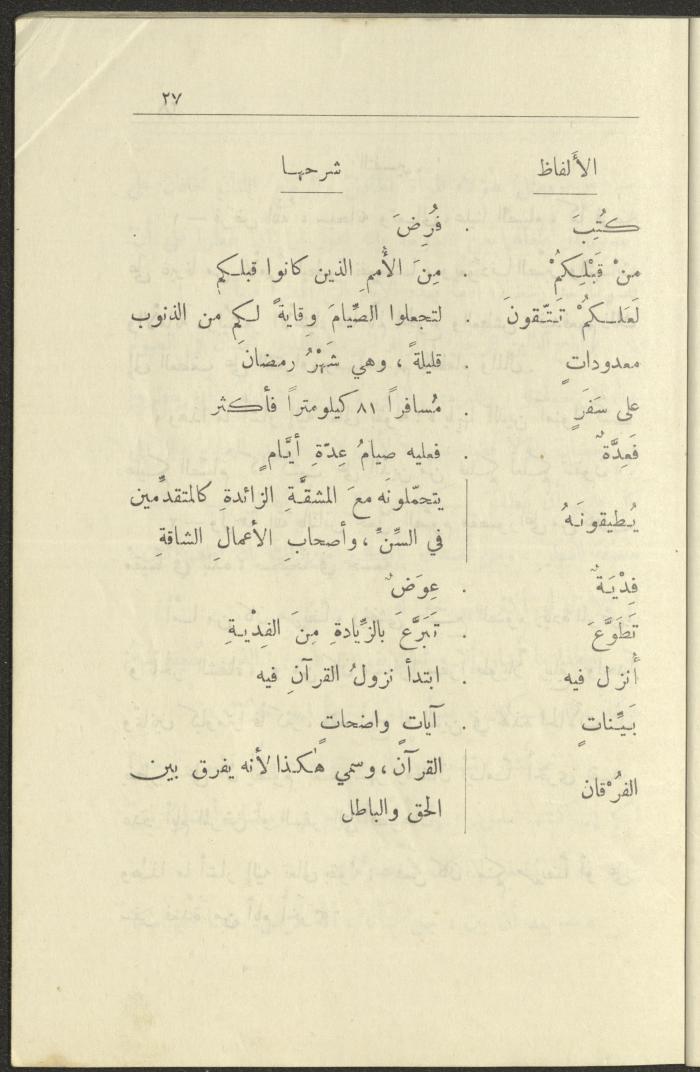 ٢٧
الأَلفاظ شرحها
كُتِبَ . فُرِضَ
مِنْ قَبْلِكمْ . مِنَ الأُممِ الذين كانوا قبلكم
لَعَلكمْ تَتّقونَ . لتجعلوا الصِّيامَ وِقايةً لكم من الذنوب
معدوداتٍ . قليلةً ، وهي شَهْرُ رمضانَ
على سَفَرٍ . مُسافراً ٨١ كيلومتراً فأكثر
فَعِدَّةٌ . فعليه صيامُ عِدّةِ أيَّامٍ
يُطيقونَهُ يتحمّلونَه معَ المشقَّةِ الزائدةِ كالمتقدِّمين
في السِّنِّ ، وأصحابِ الأعمالِ الشاقةِ
فِدْيَةٌ . عِوَضٌ
تَطَوَّعَ . تَبَرَّعَ بالزِّيادةِ مِنَ الفِدْيةِ
أُنزل فيه . ابتدأ نزولُ القرآنِ فيه
بَيِّناتٍ . آياتٍ واضحاتٍ
الفُرْقان القرآن ، وسمي هٰكذا لأنه يفرق بين
الحق والباطل